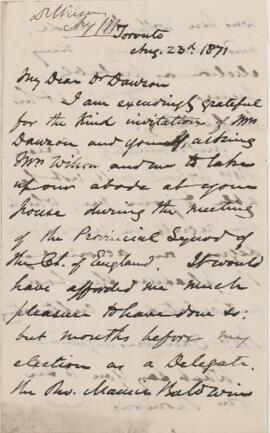 Dr Wilson
Aug 1871
Toronto
Aug. 23rd 1871
My Dear Dr Dawson
I am exceedingly grateful
for the kind invitation of Mrs
Dawson and yourself, asking
Mrs Wilson and me to take
up our abode at your
house during the meeting
of the Provincial Synod of
the Ch. of England. It would
have afforded me much
pleasure to have done so;
but months before my
election as a Delegate.
the Rev. Maurice Baldwin